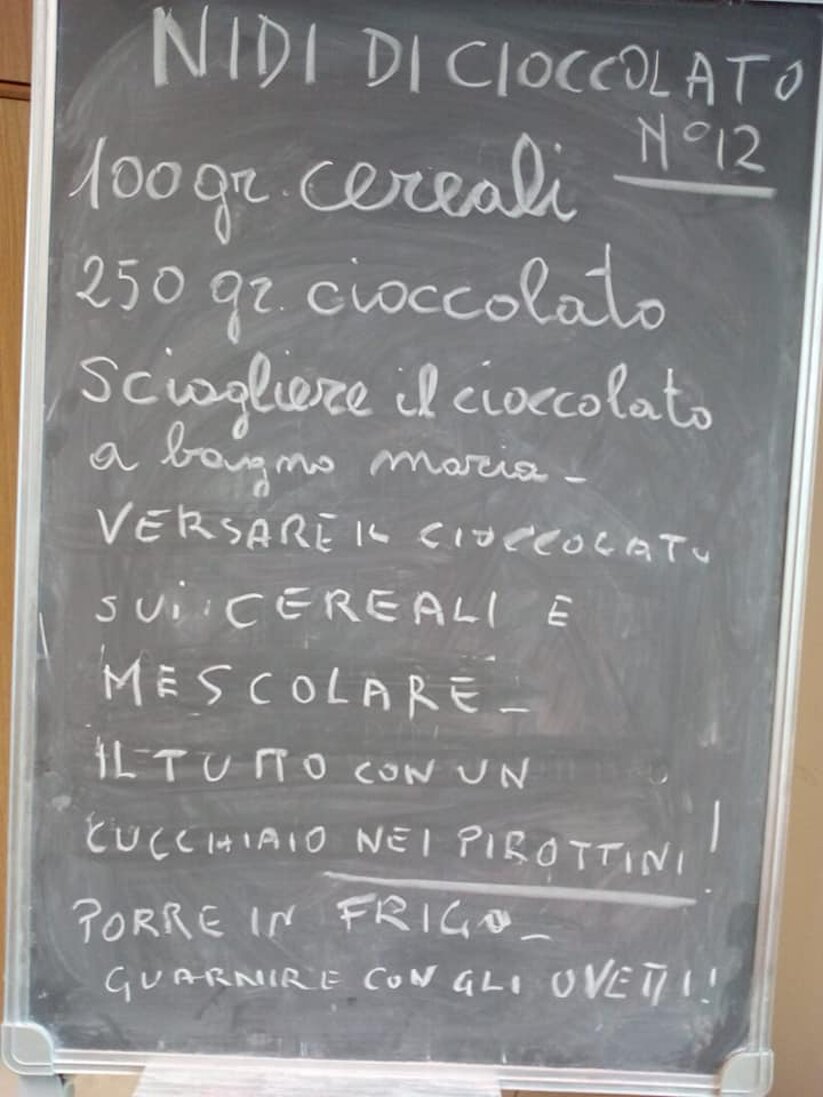 NIDI DI CIOCCOLATO
N°12
100 gr. cereali
250 gr. cioccolato
Sciogliere il cioccolato
a bagno maria -
VERSARE IL CIOCCOLATO
SUI CEREALI E
MESCOLARE -
IL TUTTO CON UN
CUCCHIAIO NEI PIROTTINI!
PORRE IN FRIGO -
GUARNIRE CON GLI OVETTI!